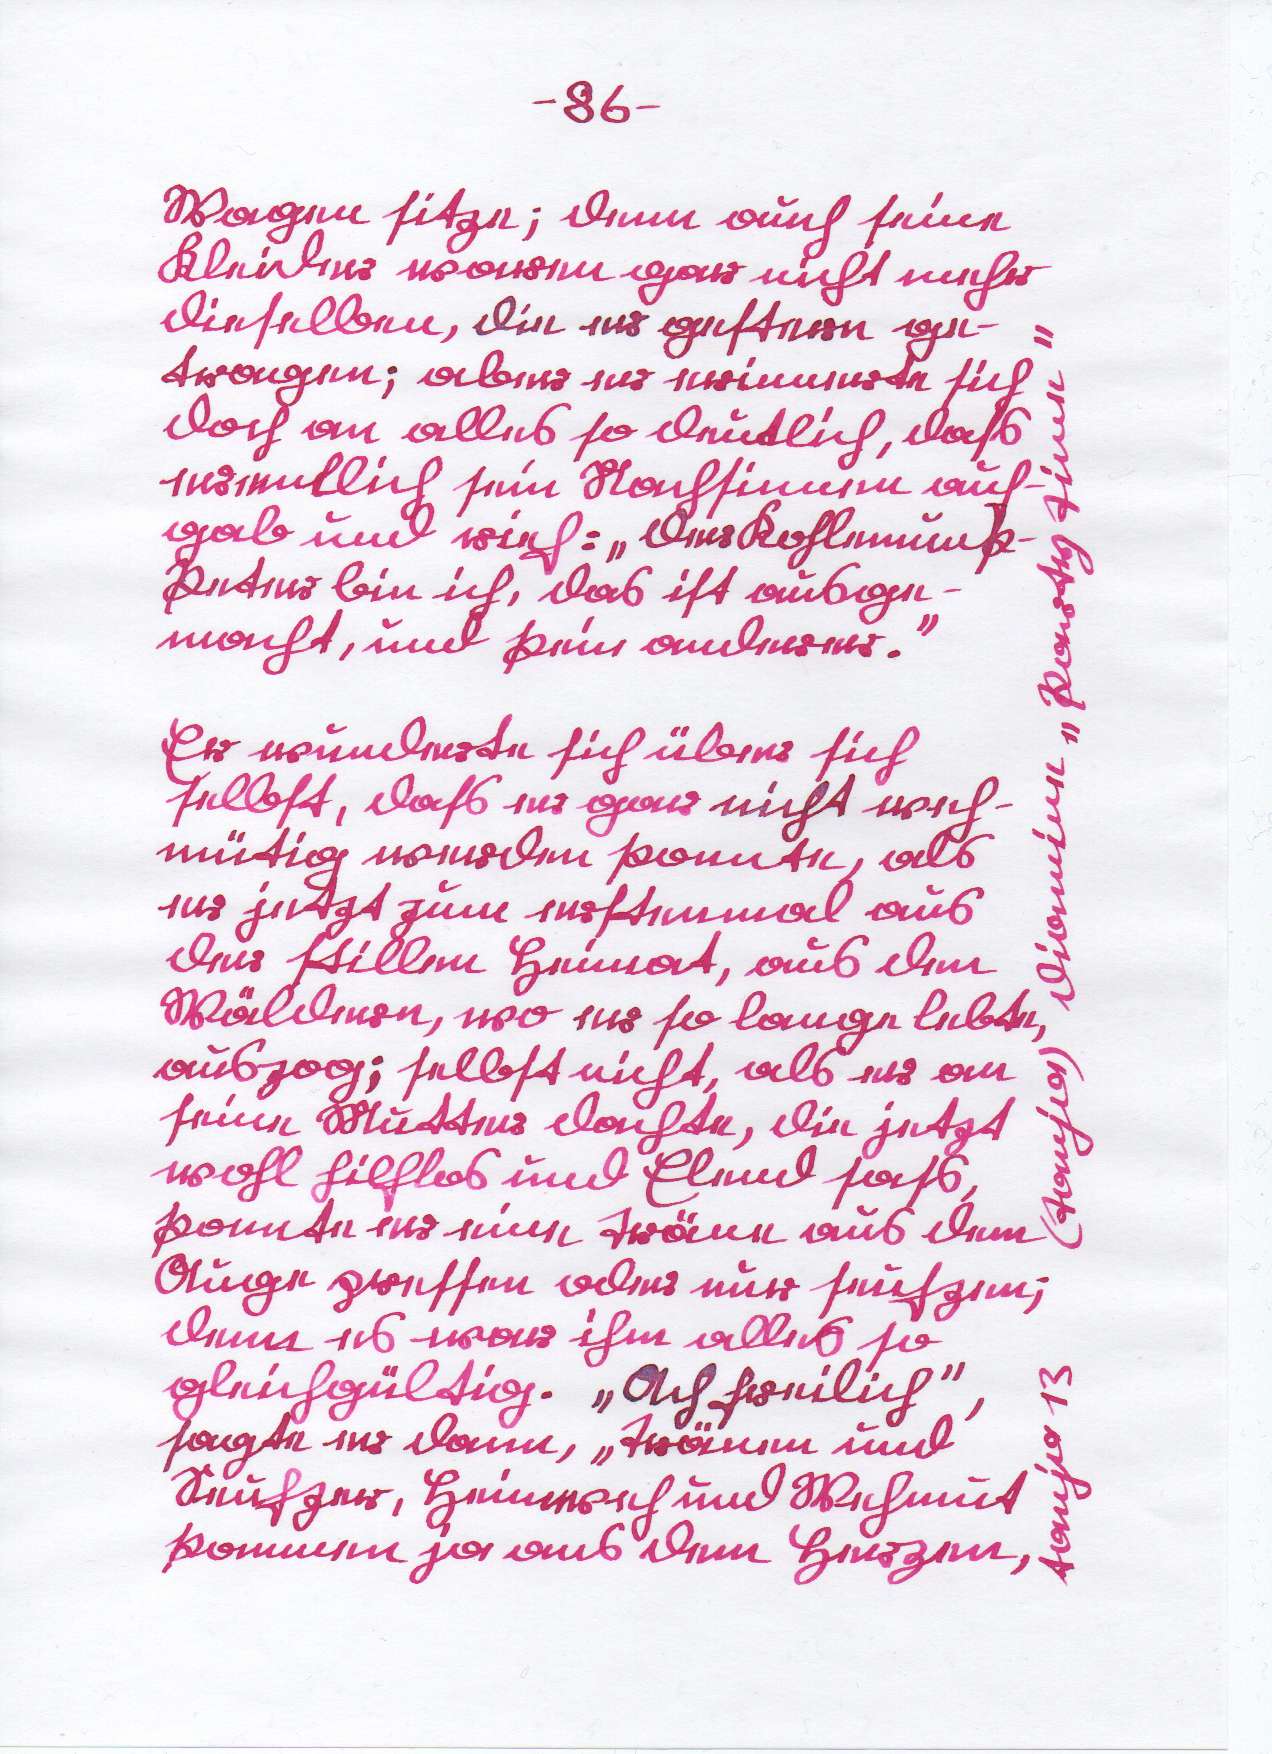 -86-
Wagen sitze; denn auch seine
Kleider waren gar nicht mehr
dieselben, die er gestern ge-
tragen; aber er erinnerte sich
doch an alles so deutlich, dass
er endlich sein Nachsinnen auf-
gab und rief: „der Kohlenmunk-
Peter bin ich, das ist ausge-
macht, und kein anderer."
Er wunderte sich über sich
selbst, dass er gar nicht weh-
mütig werden konnte, als
er jetzt zum erstenmal aus
der stillen Heimat, aus den
Wäldern, wo er so lange lebte,
auszog; selbst nicht, als er an
seine Mutter dachte, die jetzt
wohl hilflos und Elend sass,
konnte er eine Träne aus dem
Auge pressen oder nur seufzen;
denn es war ihm alles so
gleichgültig. „Ach freilich",
sagte er dann, „Tränen und
Seufzer, Heimweh und Wehmut
kommen ja aus dem Herzen,
tanja 13 (tanja)